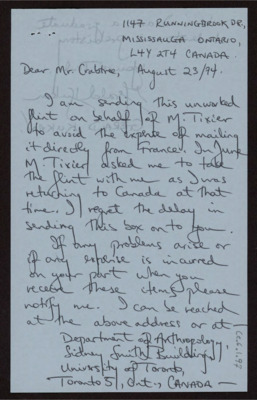 1147 RUNNINGBROOK DR,
MISSISSAUGA ONTARIO,
L4Y 2T4 CANADA
Dear Mr. Crabtree, August 23/74.
I am sending this unworked
flint on behalf of M. Tixier
to avoid the expense of mailing
it directly from France. In June
M Tixier asked me to take
the flint with me as I was
returning to Canada at that
time. I regret the delay in
sending this box on to you.
If any problems arise or
if any expense is incurred
on your part when you
receive these items please
notify me. I can be reached
at the above address or at—
Department of Anthropology,
Sidney Smith Building,
University of Toronto,
Toronto 5, Ont., CANADA—